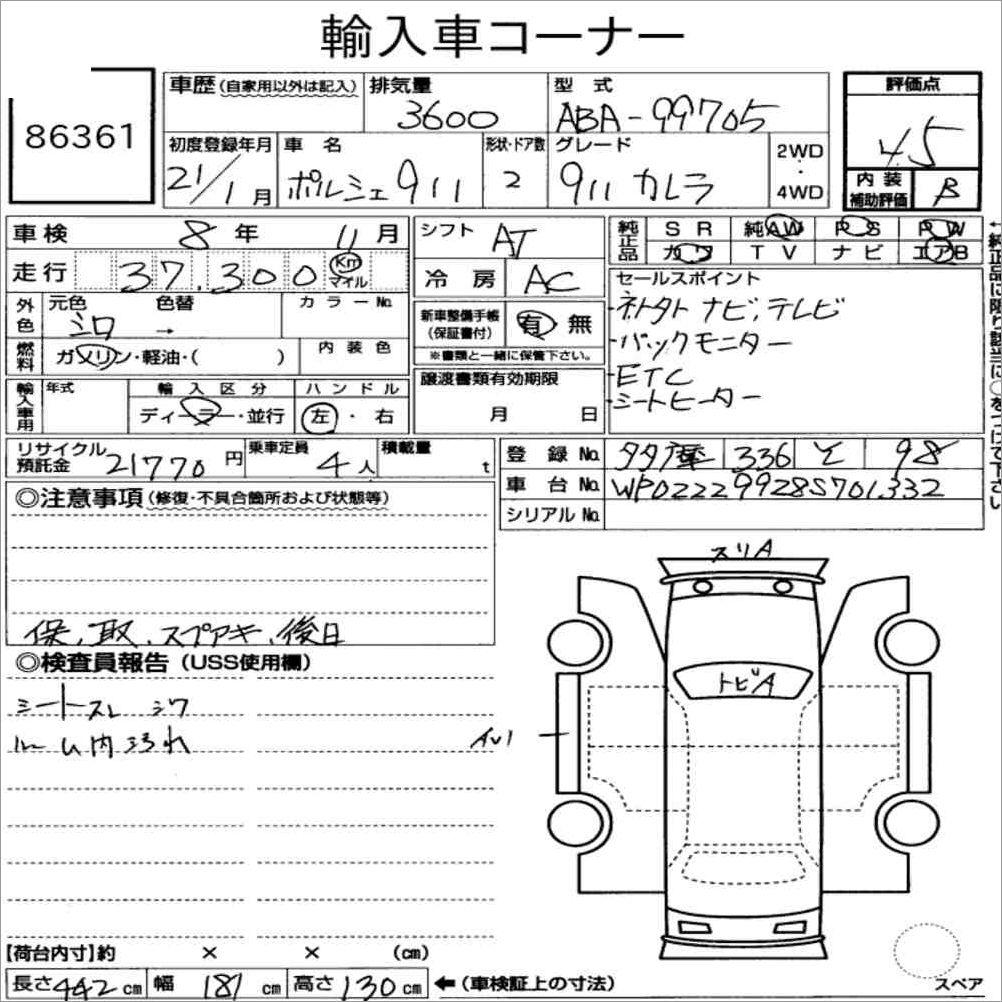 輸入車コーナー
86361
車歴(自家用以外は記入) 排気量 3600 型式 ABA-99705 評価点 4.5
初度登録年月 21/1月 車名 ポルシェ911 形状・ドア数 2 グレード 911カレラ 2WD・4WD 内装補助評価 B
車検 8年 11月 シフト AT 純正品 SR 純AW PS PW
走行 37,300 Km マイル 冷房 AC カワ TV ナビ エアB
外色 元色 シロ 色替 → カラーNo. 新車整備手帳(保証書付) 有 無 ※書類と一緒に保管下さい。
燃料 ガソリン・軽油・( ) 内装色
輸入車用 年式 輸入区分 ディーラー・並行 ハンドル 左・右 譲渡書類有効期限 月 日
セールスポイント
・ナビ,テレビ
・バックモニター
・ETC
・シートヒーター
←純正品に限り該当に○をつけて下さい
リサイクル預託金 21770円 乗車定員 4人 積載量 t
登録No. 336 98
車台No. WP0ZZZ99Z8S701332
シリアルNo.
◎注意事項(修復・不具合箇所および状態等)
保、取、スプアキ、後日
◎検査員報告(USS使用欄)
シートスレ シワ
ルーム内汚れ
スリA
トビA
【荷台内寸】約 × × (cm)
長さ442cm 幅 181cm 高さ130cm ←(車検証上の寸法)
スペア